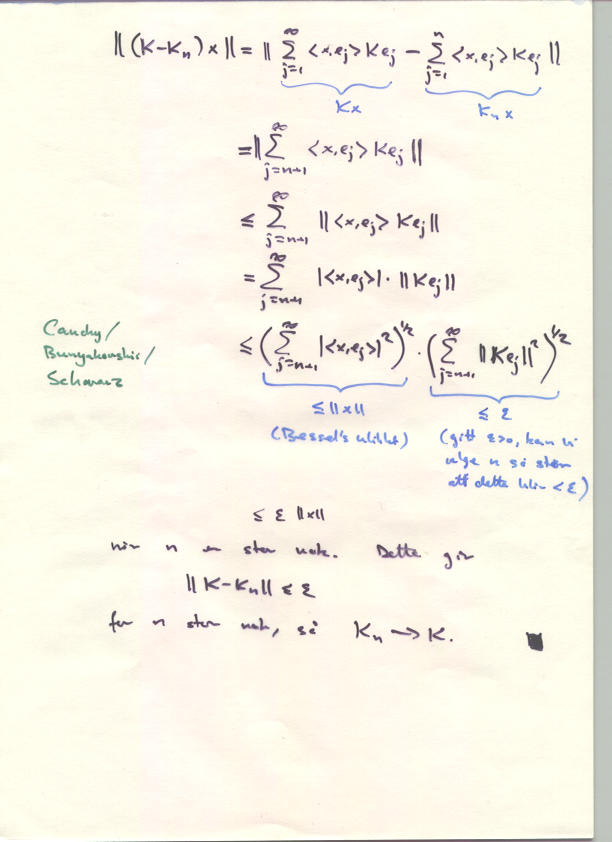 ‖(K-Kₙ)x‖ = ‖ ∑_{j=1}^{∞} <x,eⱼ>Keⱼ - ∑_{j=1}^{n} <x,eⱼ>Keⱼ ‖
Kx Kₙx
= ‖ ∑_{j=n+1}^{∞} <x,eⱼ>Keⱼ ‖
≤ ∑_{j=n+1}^{∞} ‖<x,eⱼ> Keⱼ‖
= ∑_{j=n+1}^{∞} |<x,eⱼ>| · ‖Keⱼ‖
Cauchy/
Bunyakowskis/
Schwarz
≤ (∑_{j=n+1}^{∞} |<x,eⱼ>|²)^{1/2} · (∑_{j=n+1}^{∞} ‖Keⱼ‖²)^{1/2}
≤ ‖x‖ ≤ ε
(Bessel's ulikhet) (gitt ε>0, kan vi
velge n så stor
att dette blir < ε)
≤ ε ‖x‖
når n er stor nok. Dette gir
‖K-Kₙ‖ ≤ ε
for n stor nok, så Kₙ → K.